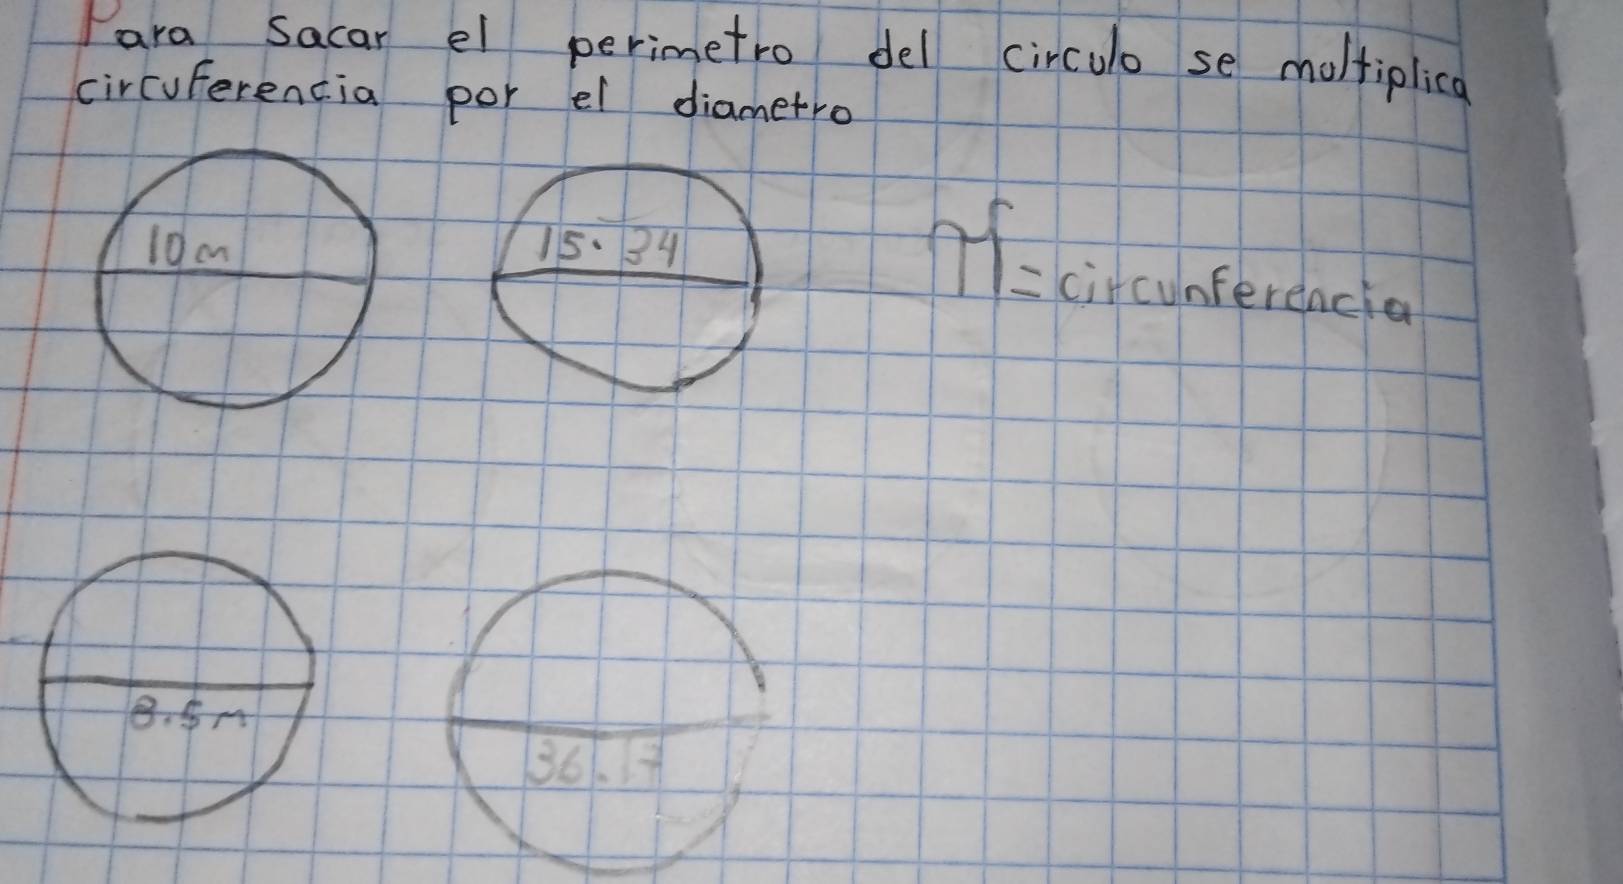 Para Sacar el perimetro del circulo se moltiplica
circuferencia por el diametro
10m
15.34
π=circunferencia
8.5m
36.17